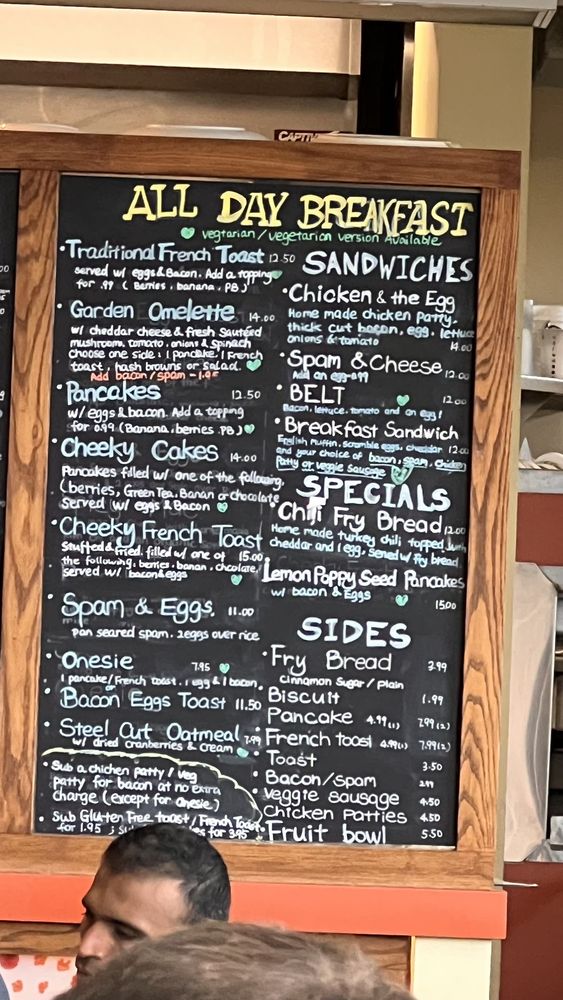 CAPTIV
ALL DAY BREAKFAST
vegtarian/vegetarian version Available
• Traditional French Toast 12.50
served w/ eggs & Bacon. Add a topping
for .99 ( Berries, banana, PB )
• Garden Omelette 14.00
w/ cheddar cheese & fresh Sautéed
mushroom, tomato, onions & Spinach
choose one side: 1 pancake, 1 French
toast, hash browns or Salad.
Add bacon/spam -
• Pancakes 12.50
w/ eggs & bacon. Add a topping
for 0.99 (Banana, berries PB)
• Cheeky Cakes 14.00
Pancakes filled w/ one of the following,
(berries, Green Tea, Banan or chocolate
Served (w/ eggs & Bacon
• Cheeky French Toast
Stuffed & fried, filled w/ one of 15.00
the following: berries, banan, chcolate,
served w/ bacon & eggs
• Spam & Eggs. 11.00
Pan seared spam. 2eggs over rice
• Onesie 7.95
1 pancake/French toast. 1 egg & 1 bacon
• Bacon Eggs Toast 11.50
• Steel Cut Oatmeal 7.99
w/ dried cranberries & cream
• Sub a chichen patty / veg
patty for bacon at no extra
charge (except for onesie)
• Sub Gluten Free toast/French Toast
for 1.95 ; for 3.95
SANDWICHES
• Chicken & the Egg
Home made chicken patty,
thick cut bacon, egg, lettuce
onions & tomato 14.00
• Spam & Cheese 12.00
Add an egg .99
• BELT 12.00
Bacon, lettuce, tomato and an egg!
• Breakfast Sandwich
English Muffin, scramble eggs, cheddar 12.00
and your choice of bacon, spam, chicken
Patty or veggie Sausage
SPECIALS
• Chili Fry Bread 12.00
Home made turkey chili topped with
cheddar and 1 egg, served w/ fry bread
• Lemon Poppy Seed Pancakes
w/ bacon & Eggs 15.00
SIDES
• Fry Bread 3.99
Cinnamon Sugar / plain
• Biscuit 1.99
• Pancake 4.99(1) 7.99(2)
• French toast 4.99(1) 7.99(2)
• Toast 3.50
• Bacon/Spam
• Veggie Sausage 4.50
• Chicken Patties 4.50
• Fruit bowl 5.50